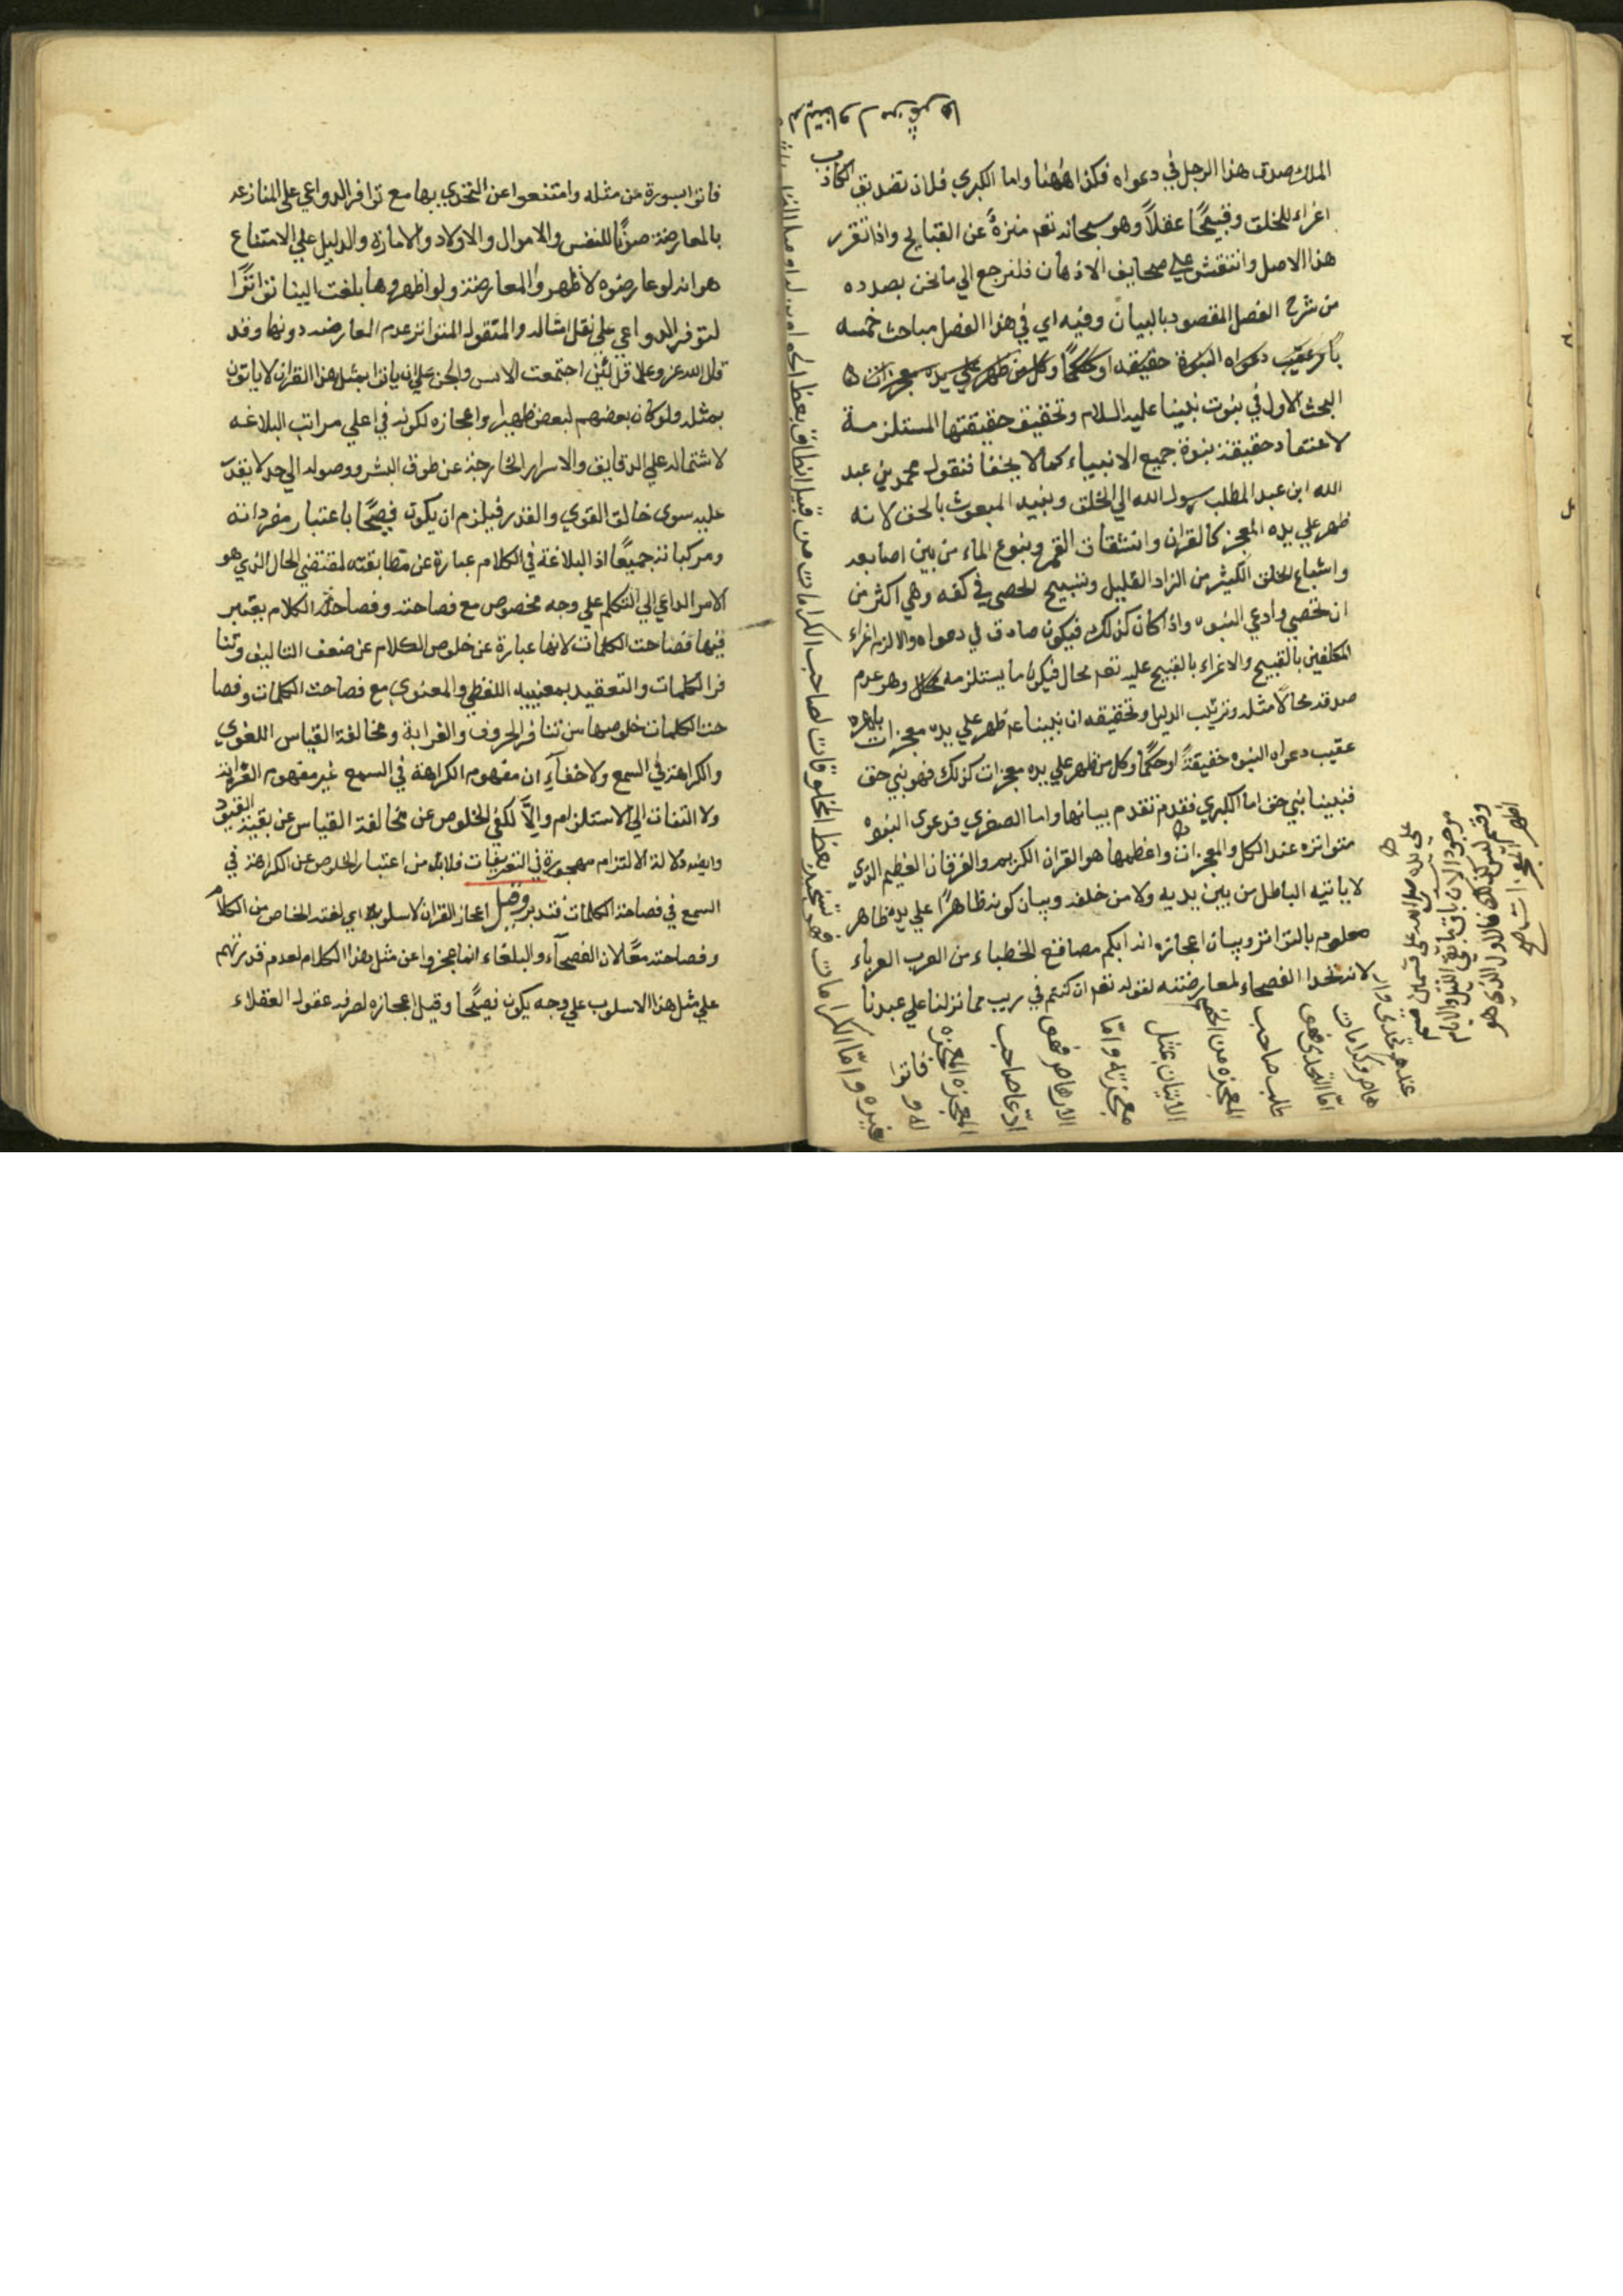 الملك صدق هذا الرجل في دعواه فكذا ههنا واما الكبري فلان تصديق الكاذب
اغراء للخلق وقبيحًا عقلاً وهو سبحانه تعم منزهٌ عن القبايح واذا تقرر
هذا الاصل وانتقش علي صحايف الاذهان فلنرجع الي ما نحن بصدده
من شرح الفصل المقصود بالبيان وفيه اي في هذا الفصل مباحث خمسه
عقيب دعواه النبوة حقيقه او حكمًا وكل من ظهر علي يده معجزات
البحث الاول في ثبوت نبينا عليه السلام وتحقيق حقيقتها المستلزمة
لاعتقاد حقيقة نبوة جميع الانبياء كما لا يخفا فنقول محمد بن عبد
الله ابن عبد المطلب رسول الله الي الخلق ونبيه المبعوث بالحق لانه
ظهر علي يده المعجز كالقران وانشقاق القمر وينوع الماء من بين اصابعه
واشباع الخلق الكثير من الزاد القليل وتسبيح الحصي في كفه وهي اكثر من
ان تحصي وادعي النبوه واذا كان كذلك فيكون صادق في دعواه والا لزم اغراء
المكلفين بالقبيح والاغراء بالقبيح عليه تعم محال فيكون ما يستلزمه وهو عدم
صدقه محالاً مثله وترتيب الدليل وتحقيقه ان نبينا عم ظهر علي يده معجزات باهره
عقيب دعواه النبوه حقيقةً او حكمًا وكل من ظهر علي يده معجزات كذلك فهو نبي حق
فنبينا نبي حق اما الكبري فقد تقدم بيانها واما الصغري فدعوي النبوه
متواتره عند الكل والمعجزات واعظمها هو القران الكريم والفرقان العظيم الذي
لا ياتيه الباطل من بين يديه ولا من خلفه وبيان كونه ظاهرًا علي يده ظاهر
معلوم بالتواتر وبيان اعجازه انه ابكم مصاقع الخطباء من العرب العرباء
لانه تحدا الفصحاء لمعارضته لقوله تعم ان كنتم في ريب مما نزلنا علي عبدنا
فاتوا
علي يده صلي الله علي قسمين
موجود الان باق ما بقي
وقسم ليس كذلك فالاول الذي هو
اظهر المعجزات
هاص وكرامات
اما التحدى فهى
طلب صاحب
المعجزه من الخصم
الاتيان بمثل
معجزته واما
الارهاص فهى
ادعا صاحب
المعجزه المعجزه
غيره واما الكرامات
فاتوا بسورة من مثله وامتنعوا عن التحدي بها مع توافر الدواعي علي المنازعه
بالمعارضة صونًا للنفس والاموال والاولاد والامارة والدليل علي الامتناع
هو انه لو عارضوه لاظهروا المعارضة ولو اظهروها بلغت الينا تواترًا
لتوفر الدواعي علي نقل امثاله والمنقول المتواتر عدم المعارضه دونها وقد
قال الله عز وعلا قل لئن اجتمعت الانس والجن علي ان ياتوا بمثل هذا القران لا ياتون
بمثله ولو كان بعضهم لبعض ظهيرا واعجازه لكونه في اعلي مراتب البلاغه
لاشتماله علي الدقايق والاسرار الخارجة عن طوق البشر ووصوله الي حد لا يقدر
عليه سوي خالق القوي والقدر فيلزم ان يكون فصيحًا باعتبار مفرداته
ومركباته جميعًا اذ البلاغة في الكلام عبارة عن مطابقته لمقتضي الحال الذي هو
الامر الداعي الي التكلم علي وجه مخصوص مع فصاحته وفصاحة الكلام يعتبر
فيها فصاحت الكلمات لانها عبارة عن خلوص الكلام عن ضعف التاليف وتنا
فر الكلمات والتعقيد بمعنييه اللفظي والمعنوي مع فصاحت الكلمات وفصا
حت الكلمات خلوصها من تنافر الحروف والغرابة ومخالفة القياس اللغوي
والكراهة في السمع ولا خفاء ان مفهوم الكراهة في السمع غير مفهوم الغرابة
ولا التفات الي الاستلزام والاّ لكفي الخلوص عن مخالفة القياس عن بقية القيود
وايضه دلالة الالتزام مهجورة في التعريفات فلا بد من اعتبار الخلوص عن الكراهة في
السمع في فصاحة الكلمات فتدبر وقيل اعجاز القران لاسلوبه اي لفته الخاص من الكلام
وفصاحته معًا لان الفصحاء والبلغاء انما عجزوا عن مثل هذا الكلام لعدم قدرتهم
علي مثل هذا الاسلوب علي وجه يكون فصيحًا وقيل اعجازه لصرفه عقول العقلاء